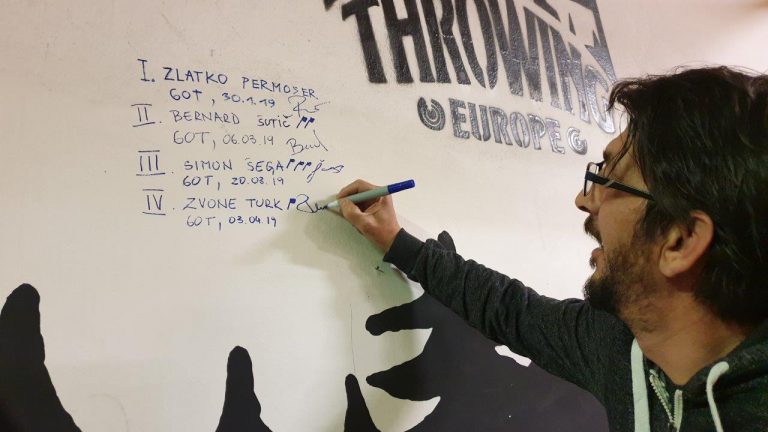 THROWING
EUROPE
I. ZLATKO PERMOSER
GOT, 30.1.19
II BERNARD ŠUTIČ
GOT, 06.03.19
III SIMON ŠEGA
GOT, 20.03.19
IV. ZVONE TURK
GOT, 03.04.19